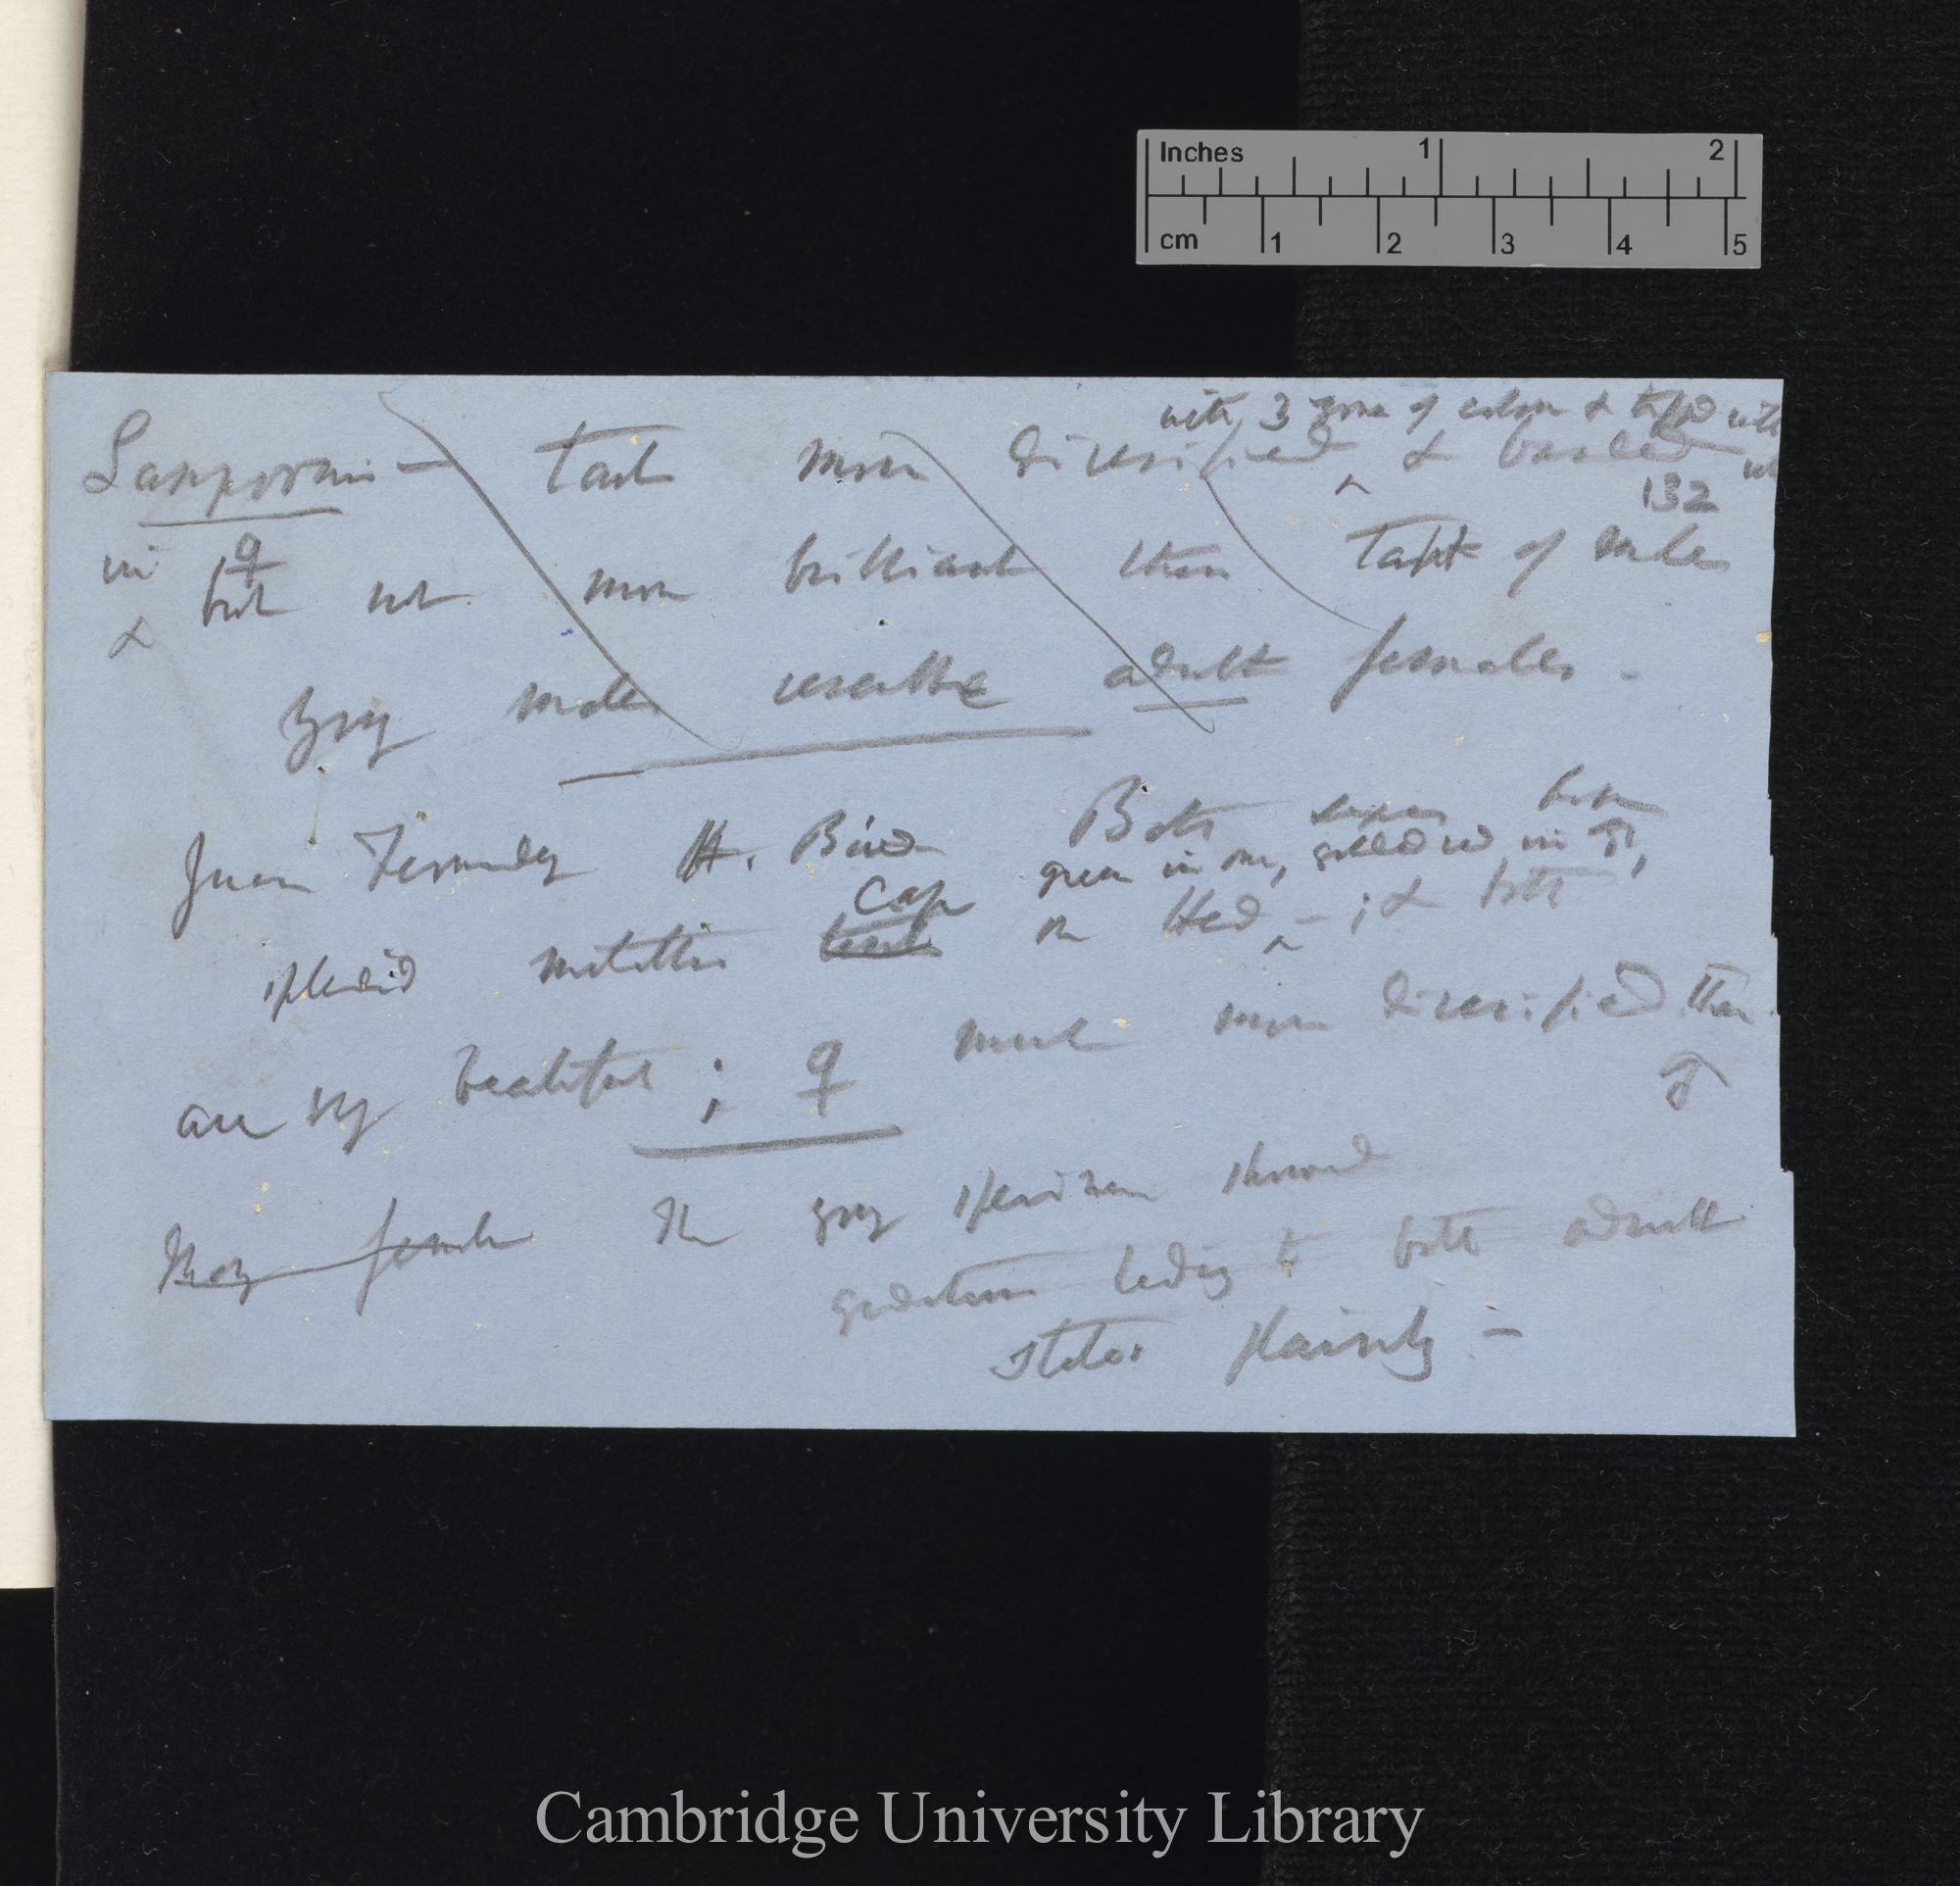 Inches 1 2
cm 1 2 3 4 5
with 3 zones of colour & tipped with
Lampornis — tail more diversified ^ & banded
132
in ♀
& but not more brilliant than tail of males
Young males resemble adult females —
Juan Fernandez H. Bird Both sexes have
green in one, gold red in ♂,
splendid metallic Cap on Head ^ — ; & both
are very beautiful ; ♀ much more diversified than
♂
Young female The young specimen showed
gradations leading to both adult
states plainly —
Cambridge University Library